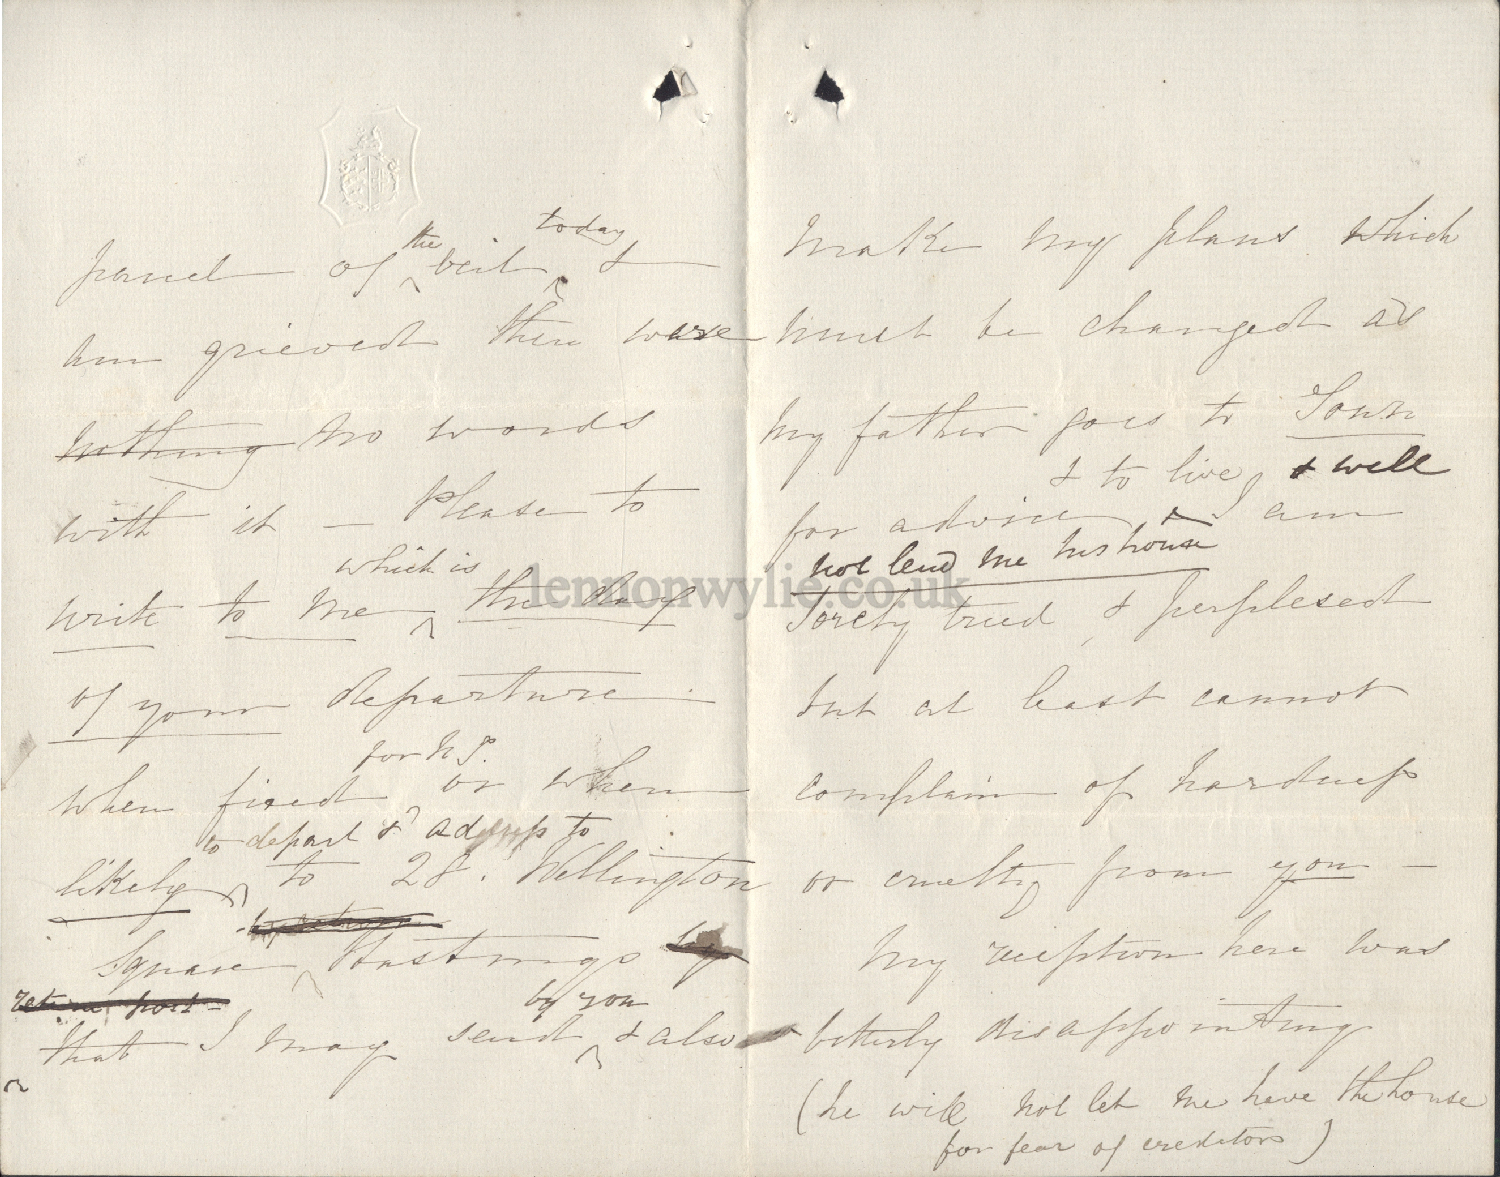 parcel of the veil today &
am grieved there were
nothing no words
with it — Please to
write to me which is the day
of your departure
when fixed for N S. or when
likely to depart & address to to 28. Wellington
Square Hastings
return post
that I may send by you & also
make my plans which
must be changed as
my father goes to Town
for advice & to live, & will
not lend me his house I am
sorely tried & perplexed
but at least cannot
complain of hardness
or cruelty from you —
My reception here was
bitterly disappointing
(he will not let me have the house
for fear of creditors)
lennonwylie.co.uk